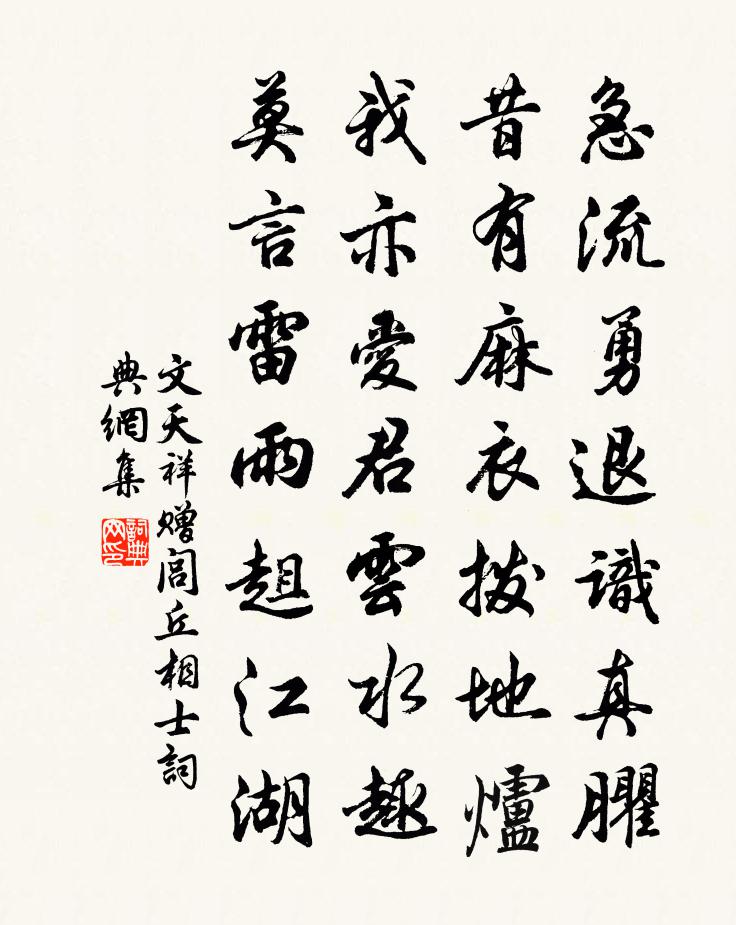 急流勇退識真臞
昔有麻衣撥地爐
我亦愛君雲水趣
莫言雷雨趄江湖
文天祥赠閭丘相士詞
典網集
詞典
网印